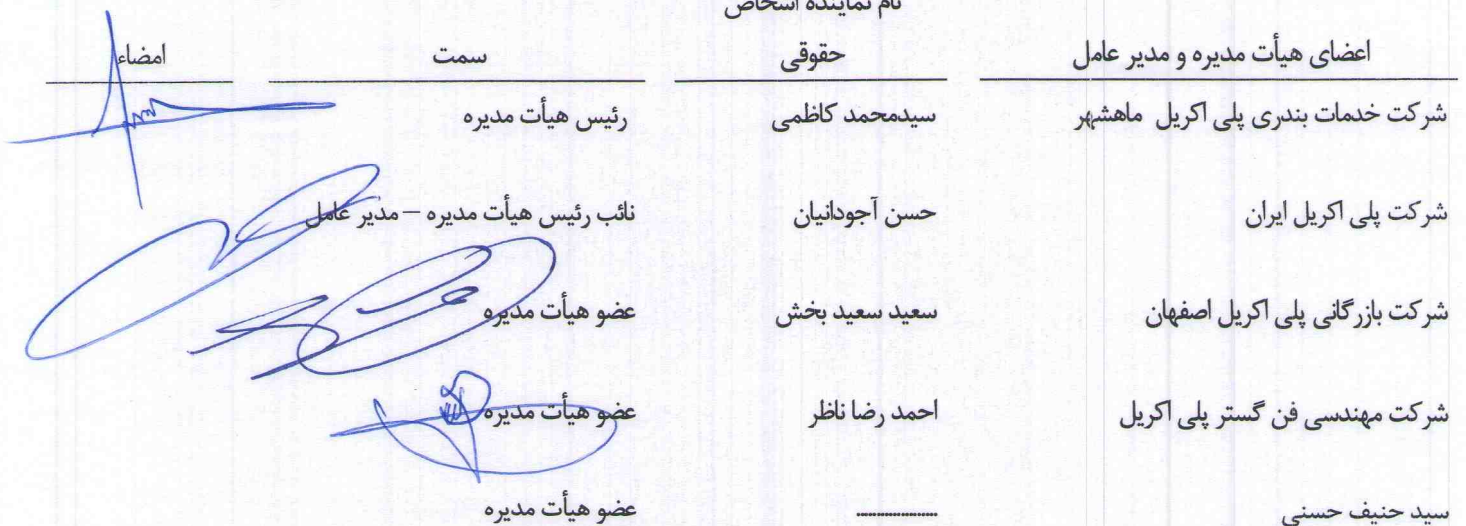 نام نماینده اشخاص
اعضای هیأت مدیره و مدیر عامل حقوقی سمت امضاء
شرکت خدمات بندری پلی اکریل ماهشهر سیدمحمد کاظمی رئیس هیأت مدیره
شرکت پلی اکریل ایران حسن آجودانیان نائب رئیس هیأت مدیره – مدیر عامل
شرکت بازرگانی پلی اکریل اصفهان سعید سعید بخش عضو هیأت مدیره
شرکت مهندسی فن گستر پلی اکریل احمد رضا ناظر عضو هیأت مدیره
سید حنیف حسنی ـــــــــ عضو هیأت مدیره